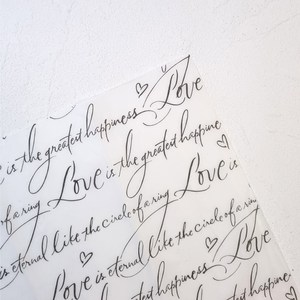 is the greatest happiness Love
is the greatest happine
of a ring Love is the greatest happine
Love is
of a ring
is eternal like the circle of a ring
Love is eternal like the circle of a ring
Love is the greatest happiness